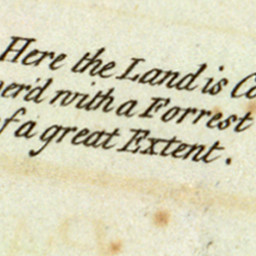 Here the Land is Co
ner'd with a Forrest
of a great Extent.